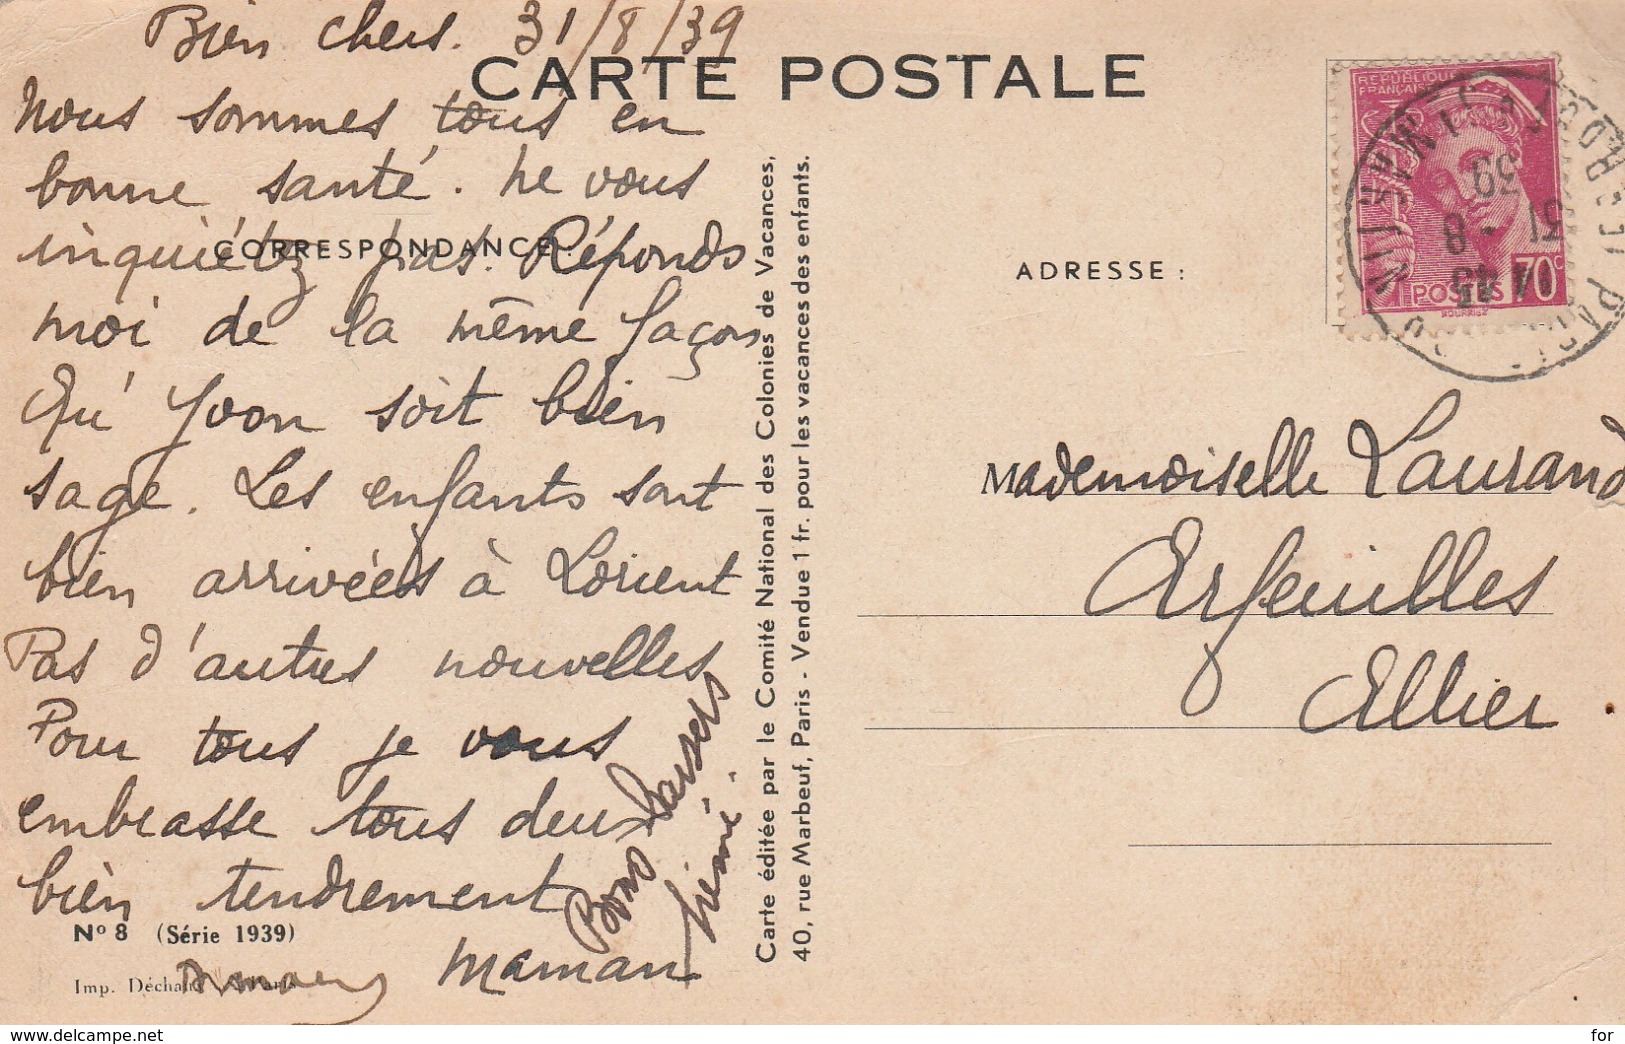 Bien chers. 31/8/39
CARTE POSTALE
Nous sommes tous en
bonne santé. Ne vous
inquiétez pas. Réponds
CORRESPONDANCE
moi de la même façon
Qu'Yvon soit bien
sage. Les enfants sont
bien arrivées à Lorient
Pas d'autres nouvelles
Pour tous je vous
embrasse tous deux
bien tendrement
Maman
Bons baisers
N° 8 (Série 1939)
Imp. Déchaux Paris
Carte éditée par le Comité National des Colonies de Vacances,
40, rue Marbeuf, Paris - Vendue 1 fr. pour les vacances des enfants.
ADRESSE :
REPUBLIQUE
FRANÇAISE
POSTES 70c
31 - 8
39
Mademoiselle Laurand
Arfeuilles
Allier
www.delcampe.net
tintin03
for